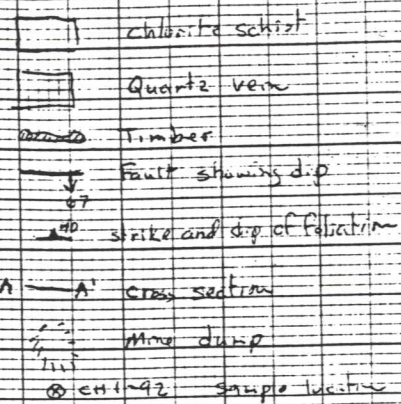 Chlorite schist
Quartz vein
Timber
Fault showing dip
67
40
strike and dip of foliation
A A' cross section
Mine dump
CH1-92 sample location